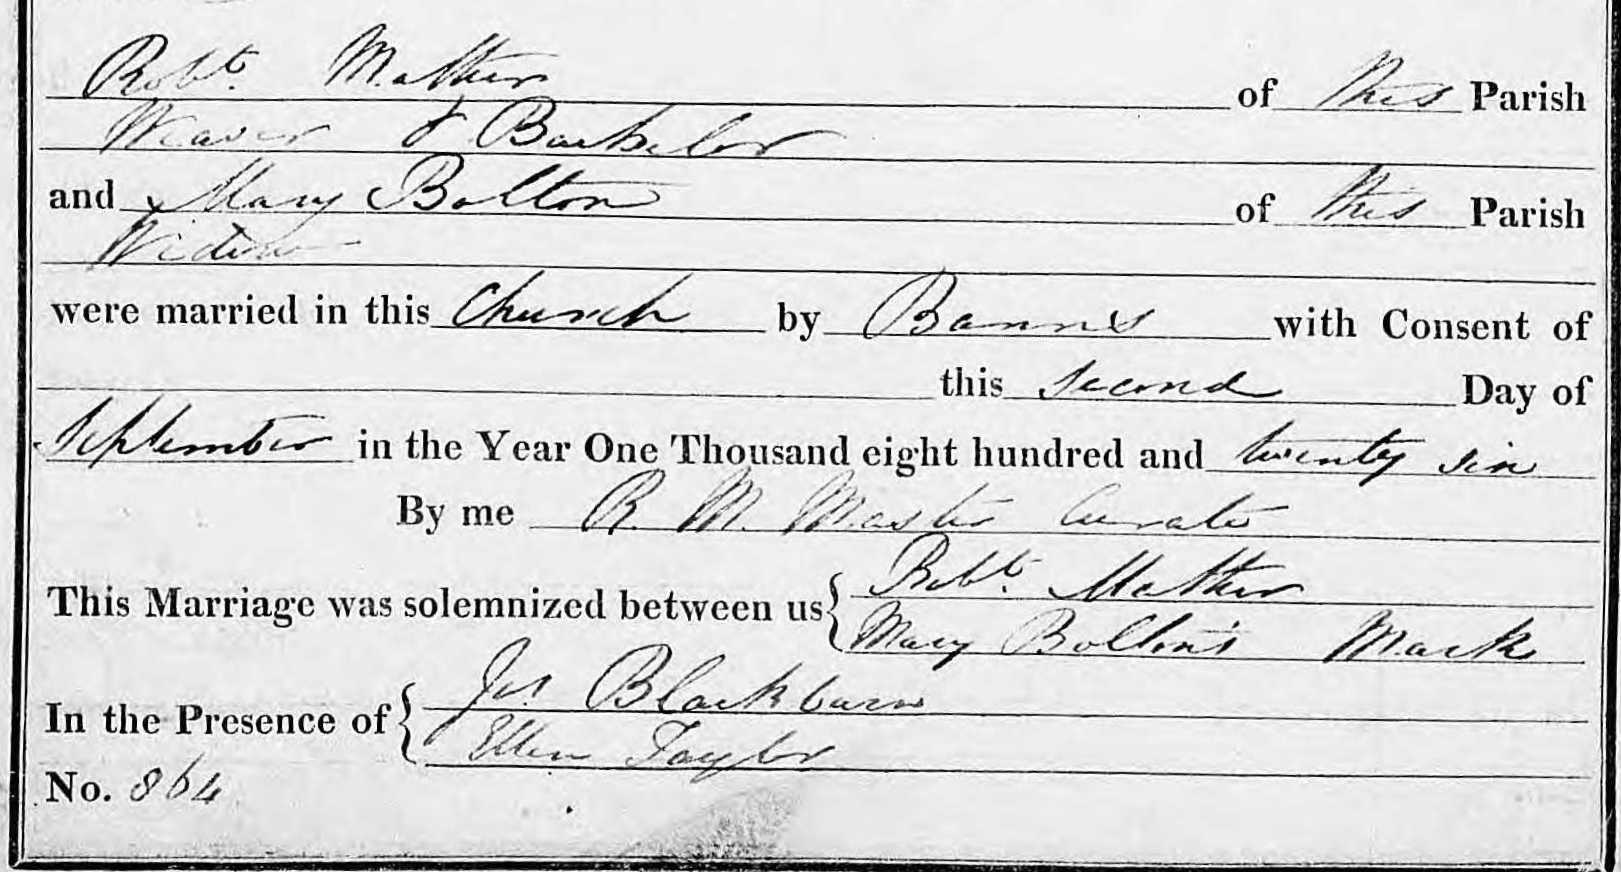 Robt. Mather of this Parish
Weaver & Bachelor
and Mary Bolton of this Parish
Widow
were married in this Church by Banns with Consent of
this second Day of
September in the Year One Thousand eight hundred and twenty six
By me R. M. Master Curate
This Marriage was solemnized between us { Robt. Mather
Mary Bolton's Mark
In the Presence of { Jas Blackburn
Ellen Taylor
No. 864